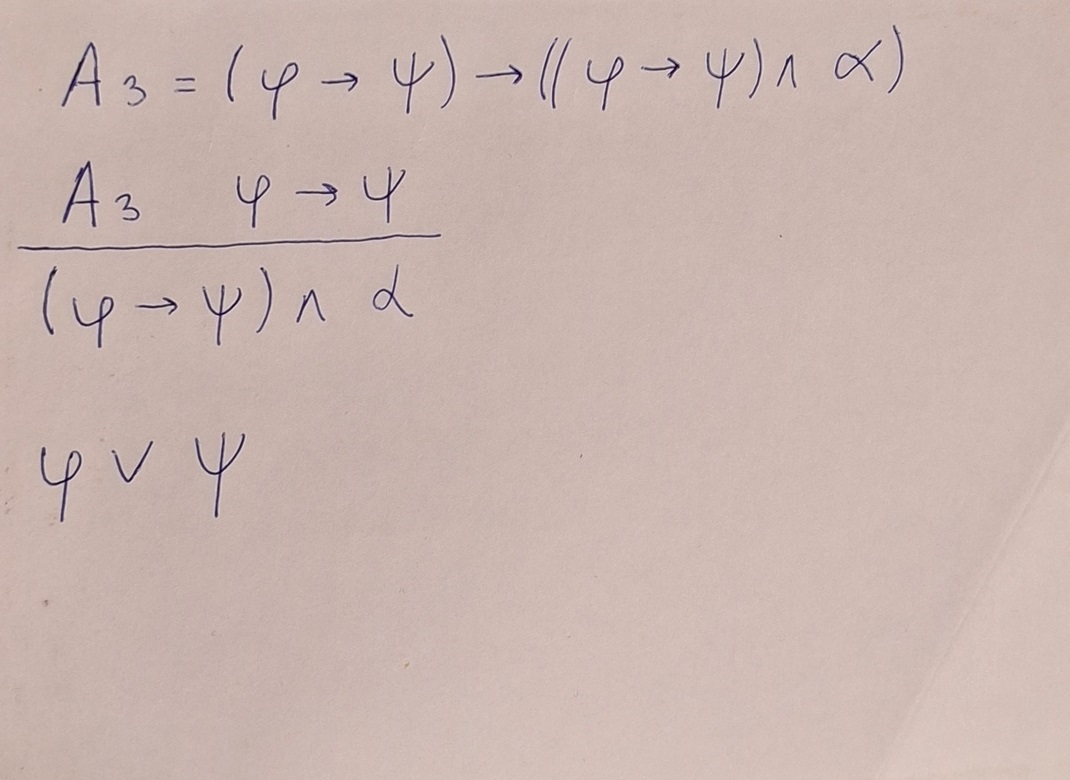 A₃ = (φ → ψ) → ((φ → ψ) ∧ α)
A₃ φ → ψ
(φ → ψ) ∧ α
φ ∨ ψ